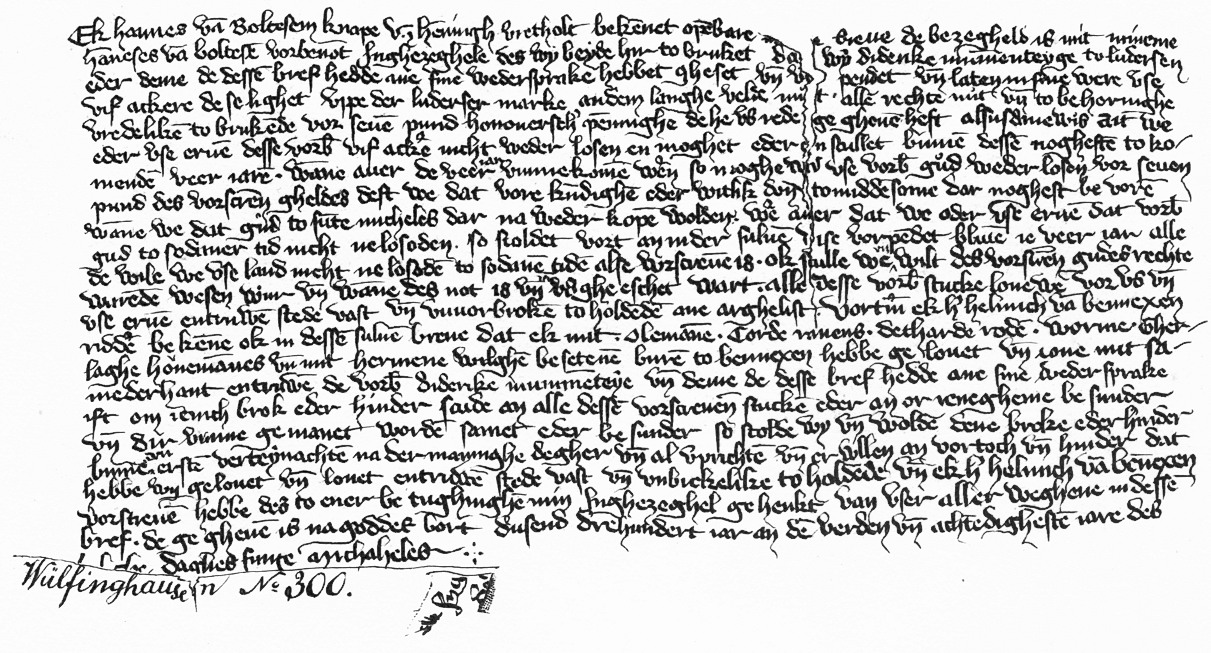 Ek hannes vā Boltesem knape vn̄ hēnīngh vretholt bekēnet opēbare breue de bezegheld is mit mineme
hāneses vā boltesē vorbenot Inghezeghele des wy beyde hir to bruket dat wy diderike mūmenteyge to ludersen
eder deme de dessē bref hedde ane sine wedersprake hebbet gheset vn̄ vor pendet vn̄ laten in sine were vse
vif ackere de se lighet vppe der luderser marke an dem langhe velde mit allē rechte nut vn̄ to behoringhe
vredelikē to brukēde vor seuē pund honouersch' pēninghē de he vs rede ge gheuē heft alsusdane wis dit we
eder vse eruē desse vorb̄ vif ackre nicht weder losen en moghet eder en scullet bīnnē dessē neghestē to ko-
mendē veer iarē. wāne auer de veer iar vmmekomē wērē so moghe wy vse vorb̄ gůd weder losen vor seuen
pund des vorscrēn gheldes deft we dat vore kūdighē eder witlik don to middesomē dar neghest be vorē
wāne we dat gůd to sūte micheles dar na weder kope wolden. wē auer dat we oder vse eruē dat vorb̄
gud to sodāner tid nicht ne losoden. so scoldet vort an in der suluē wise vorpēdet bliuē ie veer iar alle
de wile we vse land nicht ne losodē to sodanē tidē alse vorscreuē is. ok sculle wē wilt des vorscrēn gudes rechte
warēde wesen wur vn̄ wāne des not is vn̄ vs ghe eschet wart. alle desse vorb̄ stucke loue we vor vs vn̄
vse eruē entruwē stede vast vn̄ vnuorbroken to holdēde ane arghelist. vortm̄ ek h' helmich vā bennexen
ridder bekēne ok in dessē suluē breue dat ek mit. olemāne. Corde rauens. dethardē rodē. worme Gher-
laghe hōnemānes vn̄ mit hermene wilghē besetenē burē to bennexen hebbe ge louet vn̄ loue mit sa-
mederhant entruwē de vorb̄ diderike mummeteye vn̄ deme de desse bref hedde ane sine weder sprake
ift om ienich brok eder hinder scude an alle dessē vorscreuen stucke eder an or ienegheme besunder
vn̄ dar vmme gemanet wordē samet eder be sunder so scolde wy vn̄ woldē dene broke eder hinder
bīnnē den erstē verteynachtē na der maninghe degher vn̄ al vprichtē vn̄ er vullen an vortoch vn̄ hinder dat
hebbe wy gelouet vn̄ louet entruwē stede vast vn̄ vnbrekelike to holdēde vn̄ ek h' helmich vā bēnexen
vorscreuē hebbe des to ener be tughinghē min Inghezeghel ge henkt van vser aller weghene in dessē
bref. de ge gheuē is na goddes bort dusend drehundert iar an dē verden vn̄ achtedighestē iare des
daghes sunte michaheles
Wülfinghausen № 300.